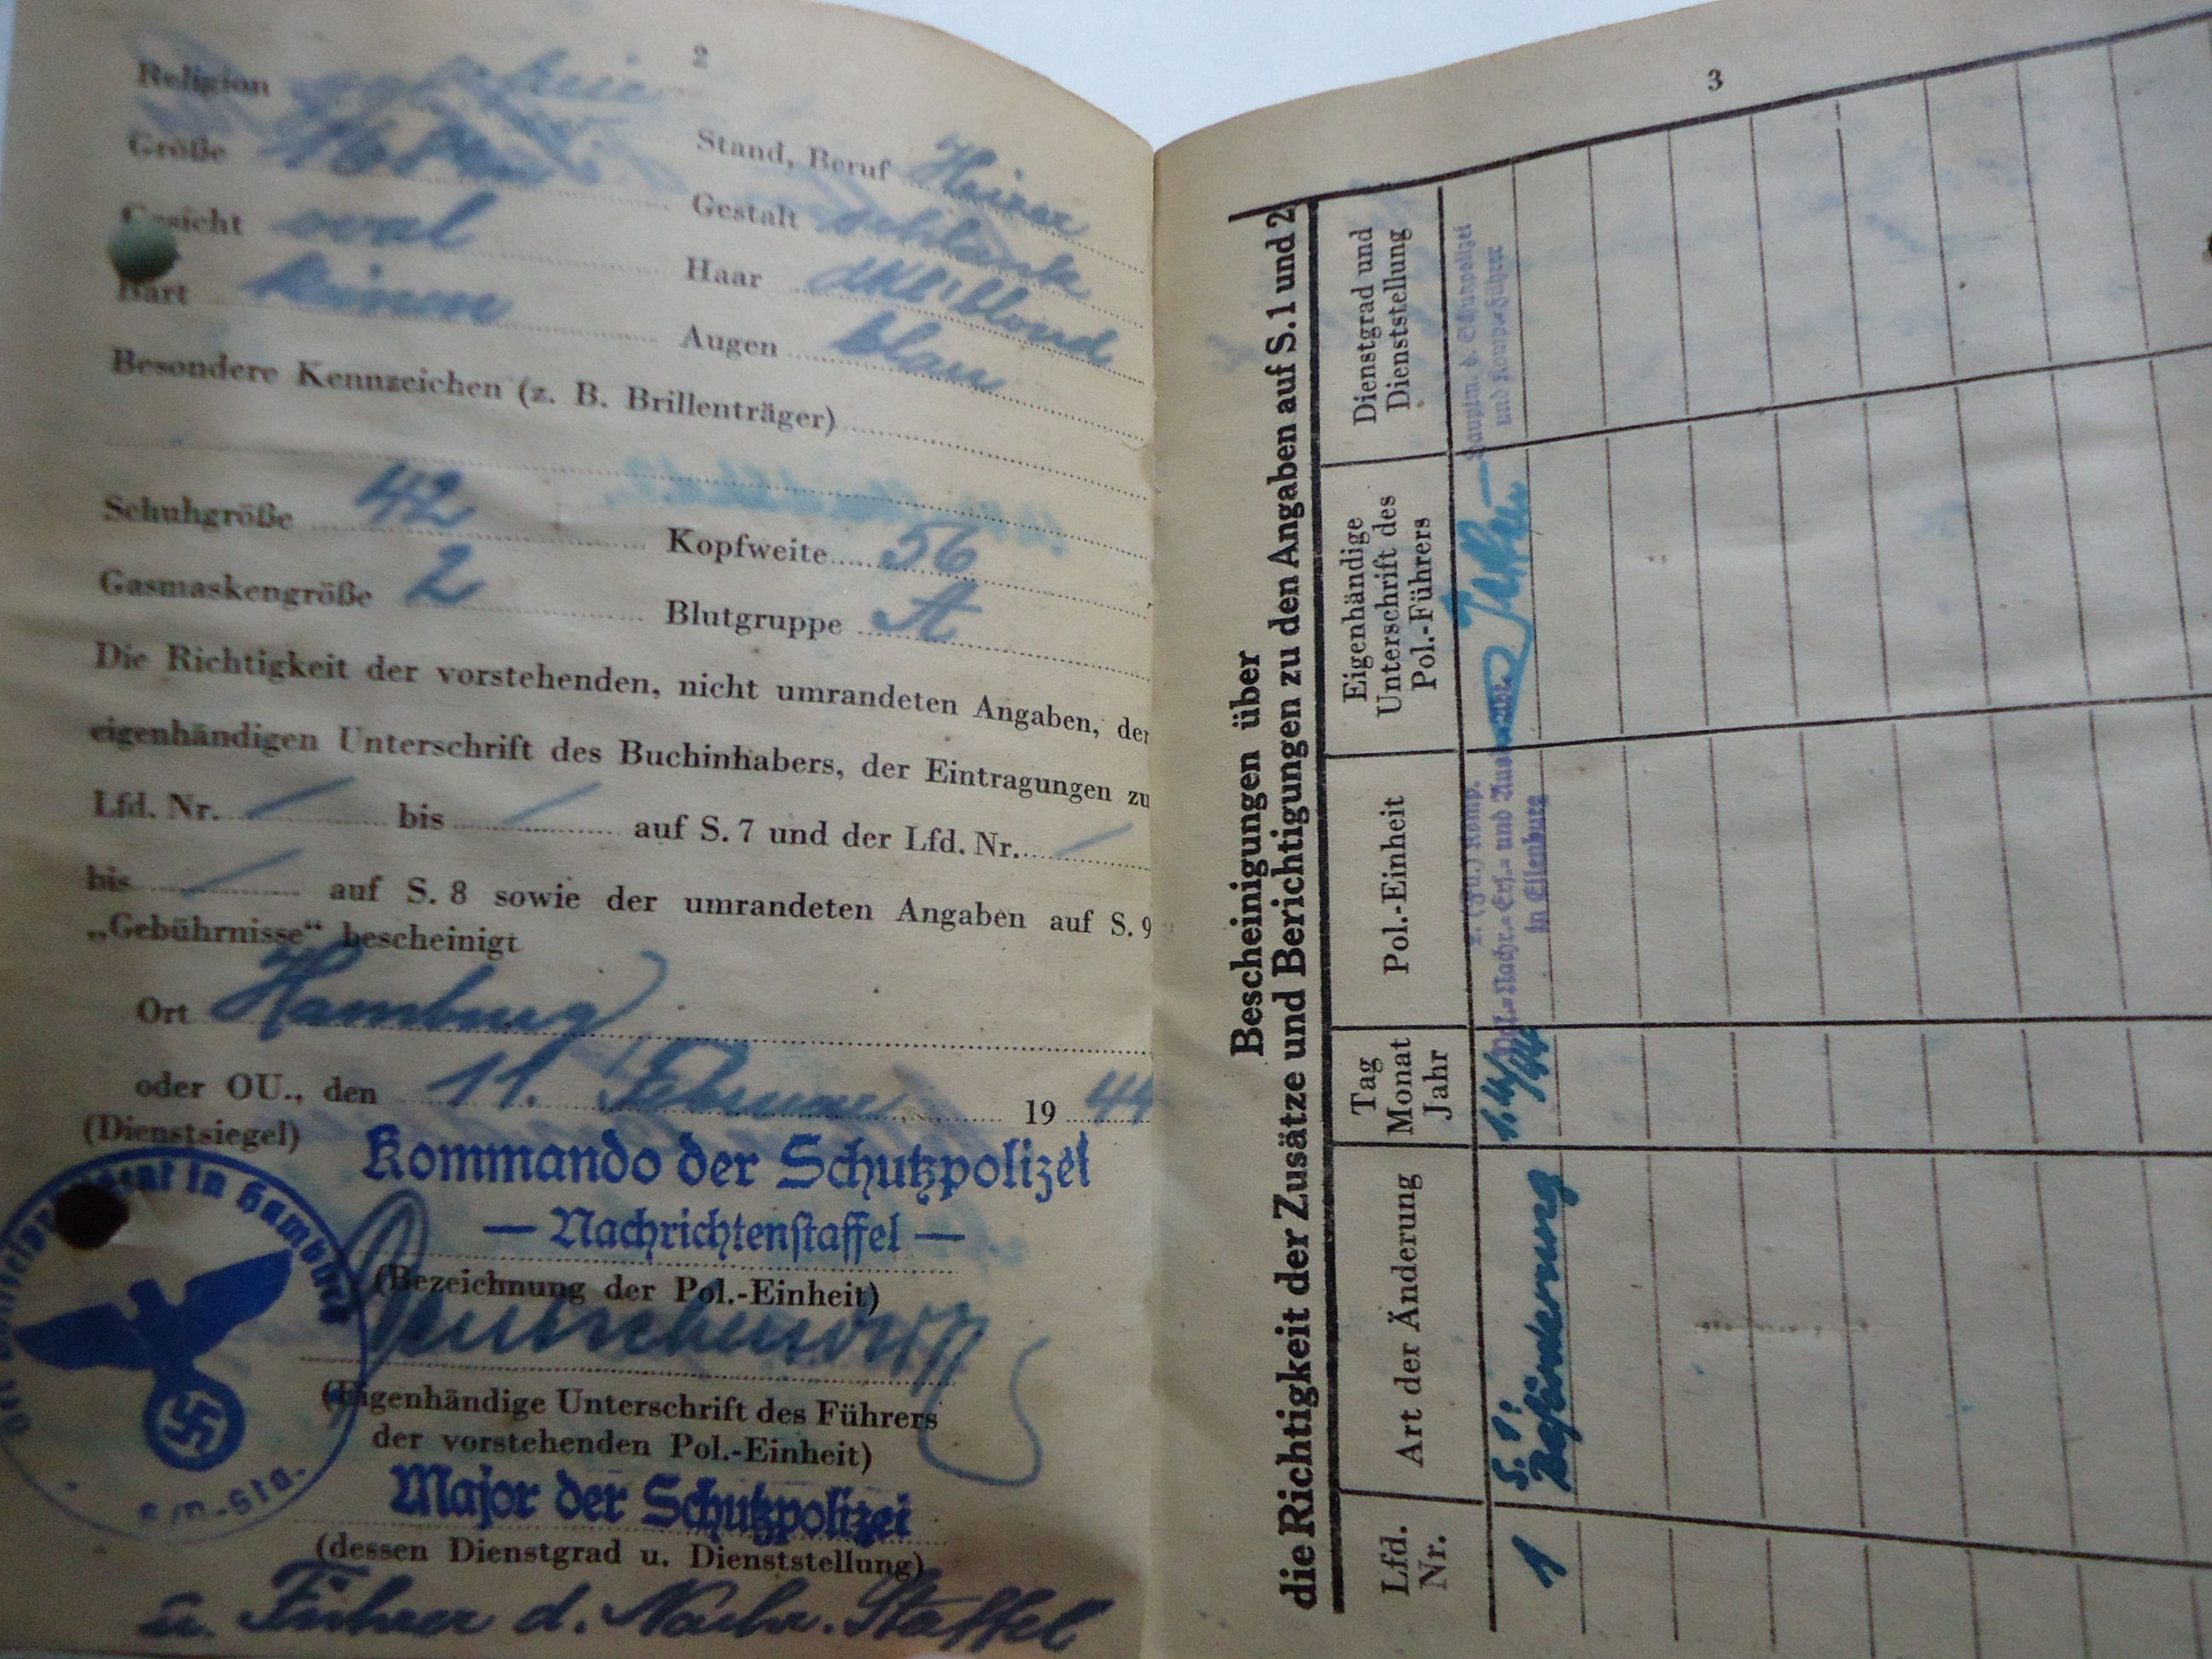 2
Religion
Größe 168 Stand, Beruf Heizer
Gesicht oval Gestalt schlank
Bart keinen Haar dkl. blond
Augen blau
Besondere Kennzeichen (z. B. Brillenträger)
Schuhgröße 42 Kopfweite 56
Gasmaskengröße 2 Blutgruppe A
Die Richtigkeit der vorstehenden, nicht umrandeten Angaben, der
eigenhändigen Unterschrift des Buchinhabers, der Eintragungen zu
Lfd. Nr. / bis / auf S. 7 und der Lfd. Nr. /
bis / auf S. 8 sowie der umrandeten Angaben auf S. 9
„Gebührnisse“ bescheinigt
Ort Hamburg
oder OU., den 11. Februar 19 44
(Dienstsiegel)
Kommando der Schutzpolizei
— Nachrichtenstaffel —
(Bezeichnung der Pol.-Einheit)
(Eigenhändige Unterschrift des Führers
der vorstehenden Pol.-Einheit)
Major der Schutzpolizei
(dessen Dienstgrad u. Dienststellung)
u. Führer d. Nachr. Staffel
Der Polizeipräsident in Hamburg
3
Bescheinigungen über
die Richtigkeit der Zusätze und Berichtigungen zu den Angaben auf S. 1 und 2
Lfd.
Nr.
Art der Änderung
Tag
Monat
Jahr
Pol.-Einheit
Eigenhändige
Unterschrift des
Pol.-Führers
Dienstgrad und
Dienststellung
1
S. 1:
Beförderung
(Fu.) Komp.
Pol.=Nachr.=Ers.= und
in Eilenburg
Hauptm. d. Schutzpolizei
und Komp.=Führer